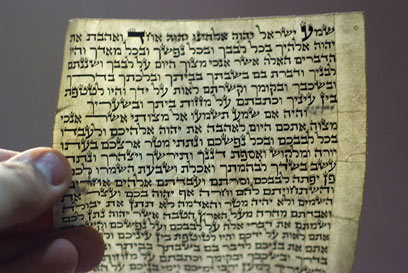 שמע ישראל יהוה אלהינו יהוה אחד ואהבת את
יהוה אלהיך בכל לבבך ובכל נפשך ובכל מאדך והיו
הדברים האלה אשר אנכי מצוך היום על לבבך ושננתם
לבניך ודברת בם בשבתך בביתך ובלכתך בדרך
ובשכבך ובקומך וקשרתם לאות על ידך והיו לטטפת
בין עיניך וכתבתם על מזזות ביתך ובשעריך
והיה אם שמע תשמעו אל מצותי אשר אנכי
מצוה אתכם היום לאהבה את יהוה אלהיכם ולעבדו
בכל לבבכם ובכל נפשכם ונתתי מטר ארצכם בעתו
יורה ומלקוש ואספת דגנך ותירשך ויצהרך ונתתי
עשב בשדך לבהמתך ואכלת ושבעת השמרו לכם
פן יפתה לבבכם וסרתם ועבדתם אלהים אחרים
והשתחויתם להם וחרה אף יהוה בכם ועצר את
השמים ולא יהיה מטר והאדמה לא תתן את יבולה
ואבדתם מהרה מעל הארץ הטבה אשר יהוה נתן לכם
ושמתם את דברי אלה על לבבכם ועל נפשכם וקשרתם
אתם לאות על ידכם והיו לטוטפת בין עיניכם ולמדתם
אתם את בניכם לדבר בם בשבתך בביתך ובלכתך